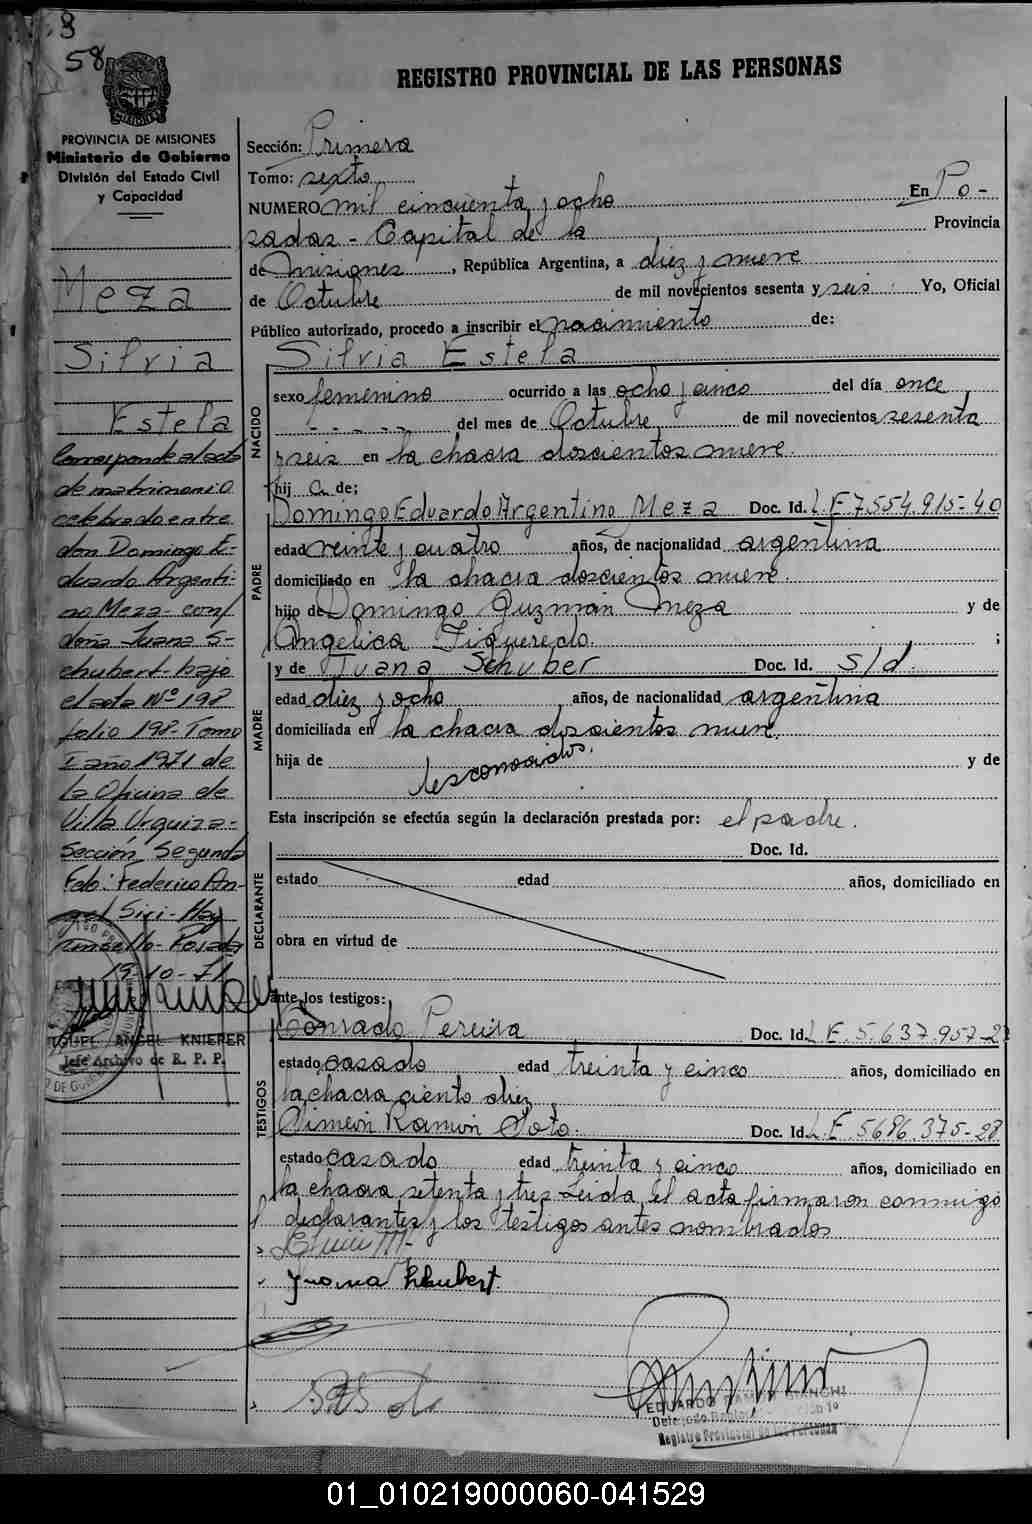 8
58
REGISTRO PROVINCIAL DE LAS PERSONAS
PROVINCIA DE MISIONES
Ministerio de Gobierno
División del Estado Civil
y Capacidad
Meza
Silvia
Estela
Corresponde al acta
de matrimonio
celebrado entre
don Domingo E-
duardo Argenti-
no Meza - con
doña Juana S-
chubert - bajo
el acta Nº 198
folio 198 - Tomo
I año 1971 de
la Oficina de
Villa Urquiza -
Sección Segunda
Fdo: Federico An-
gel Siri - Hay
un sello - Posadas
19-10-71
MIGUEL ANGEL KNIERER
Jefe Archivo de R. P. P.
Sección: Primera
Tomo: sexto
NUMERO mil cincuenta y ocho En Po-
sadas - Capital de la Provincia
de Misiones, República Argentina, a diez y nueve
de Octubre de mil novecientos sesenta y seis Yo, Oficial
Público autorizado, procedo a inscribir el nacimiento de:
Silvia Estela
NACIDO
sexo femenino ocurrido a las ocho y cinco del día once
- - - - - del mes de Octubre de mil novecientos sesenta
y seis en la chacra doscientos nueve.
hij a de;
PADRE
Domingo Eduardo Argentino Meza Doc. Id. L.E. 7.554.915-40
edad veinte y cuatro años, de nacionalidad argentina
domiciliado en la chacra doscientos nueve.
hijo de Domingo Guzmán Meza y de
Angélica Figueredo. ;
MADRE
y de Juana Schuber Doc. Id. s/d.
edad diez y ocho años, de nacionalidad argentina
domiciliada en la chacra doscientos nueve.
hija de desconocidos. y de
Esta inscripción se efectúa según la declaración prestada por: el padre.
DECLARANTE
Doc. Id.
estado edad años, domiciliado en
obra en virtud de
ante los testigos:
TESTIGOS
Conrado Pereira Doc. Id. L.E. 5.637.957-27
estado casado edad treinta y cinco años, domiciliado en
la chacra ciento diez
Simeón Ramón Soto. Doc. Id. L.E. 5696.375-28
estado casado edad treinta y cinco años, domiciliado en
la chacra setenta y tres Leida el acta firmaron conmigo
declarantes y los testigos antes nombrados
Juana Shubert
EDUARDO RAMON BIANCHI
Registro Provincial de las Personas
01_010219000060-041529